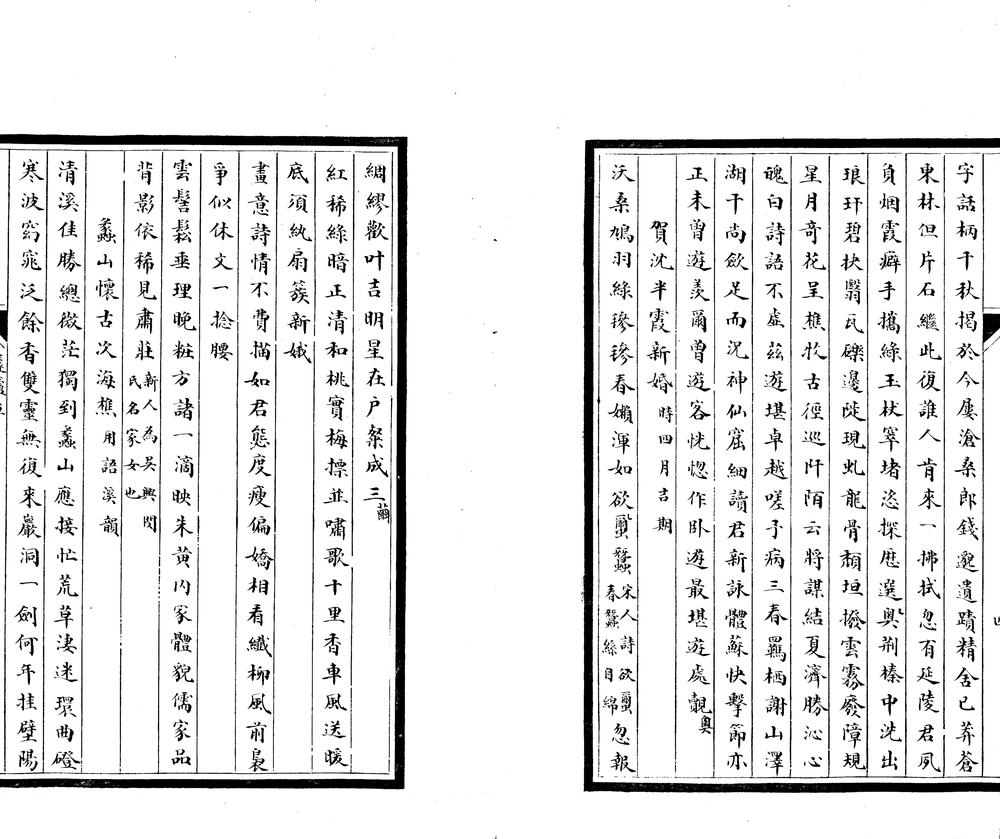 字話柄千秋揭於今屢滄桑郎錢邈遺蹟精舍已莽蒼
東林但片石繼此復誰人肯來一拂拭忽有延陵君夙
負烟霞癖手攜綠玉杖窣堵恣探歷選輿荆榛中洗出
琅玕碧抉翳瓦礫邊陡現虬龍骨頹垣撥雲霧廢障規
星月奇花呈樵牧古徑巡阡陌云將謀結夏濟勝沁心
魄白詩語不虛茲遊堪卓越嗟予病三春羈栖謝山澤
湖干尚斂足而況神仙窟細讀君新詠體蘇快擊節亦
正未曾遊羨爾曾遊客恍惚作卧遊最堪遊處覿奧
賀沈半霞新婚時四月吉期
沃桑鳩羽綠摻摻春嬾渾如欲蠒蠶宋人詩欲蠒春蠶絲自綿忽報
綢繆歡叶吉明星在户粲成三繭
紅稀綠暗正清和桃實梅摽並嘯歌十里香車風送暖
底須紈扇簇新娥
畫意詩情不費描如君態度瘦偏嬌相看纖柳風前裊
爭似休文一捻腰
雲髻鬆垂理晚粧方諸一滴映朱黄内家體貌儒家品
背影依稀見肅莊新人為吳興閔氏名家女也
蠡山懷古次海樵用語溪韻
清溪佳勝總微茫獨到蠡山應接忙荒草淒迷環曲磴
寒波窈窕泛餘香雙靈無復來巖洞一劍何年挂壁陽